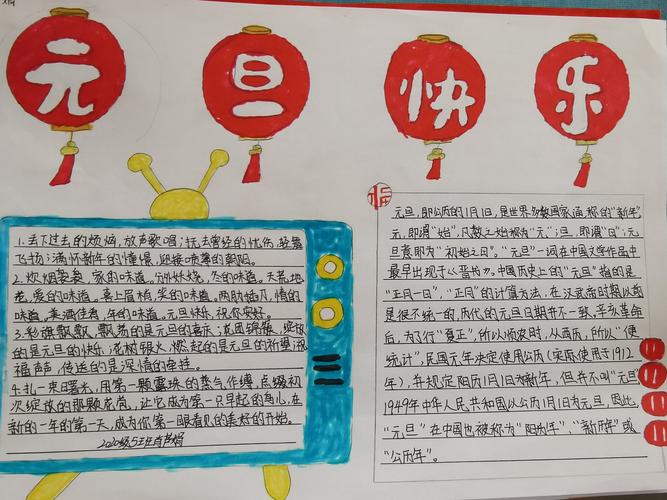 元旦快乐
1.丢下过去的烦恼，放声歌唱；抚去曾经的忧伤，轻露
飞扬；满怀新年的憧憬，迎接喷薄的朝阳。
2.炊烟袅袅，家的味道。
冬的味道。天荒地
老，爱的味道。喜上眉梢，笑的味道。两肋插刀，情的
味道。美酒佳肴，年的味道。元旦快乐，祝你安好。
3.彩旗飘飘，飘扬的是元旦的喜乐；花团锦簇，绽放
的是元旦的快乐；花树银火，燃起的是元旦的祈望；祝
福声声，传递的是深情的牵挂。
4.扎一束曙光，用第一颗露珠的蒸气作缠，点缀初
次绽放的那颗花苞，让它成为第一只早起的鸟儿，在
新的一年的第一天，成为你第一眼看见的美好的开始。
2020级5班
福
元旦，即公历的1月1日，是世界多数国家通称的“新年”。
元，即谓“始”，凡数之始称为“元”；旦，即谓“日”；元
旦意即为“初始之日”。“元旦”一词在中国文学作品中
最早出现于《晋书》。中国历史上的“元旦”指的是
“正月一日”，“正月”的计算方法，在汉武帝时期以前
是很不统一的，历代的元旦日期并不一致。辛亥革命
后，为了行“夏正”，所以顺农时，从西历，所以“便
统计”，民国元年决定使用公历（实际使用于1912
年），并规定阳历1月1日为新年，但并不叫“元旦”
1949年中华人民共和国以公历1月1日为元旦，因此
“元旦”在中国也被称为“阳历年”、“新历年”或
“公历年”。